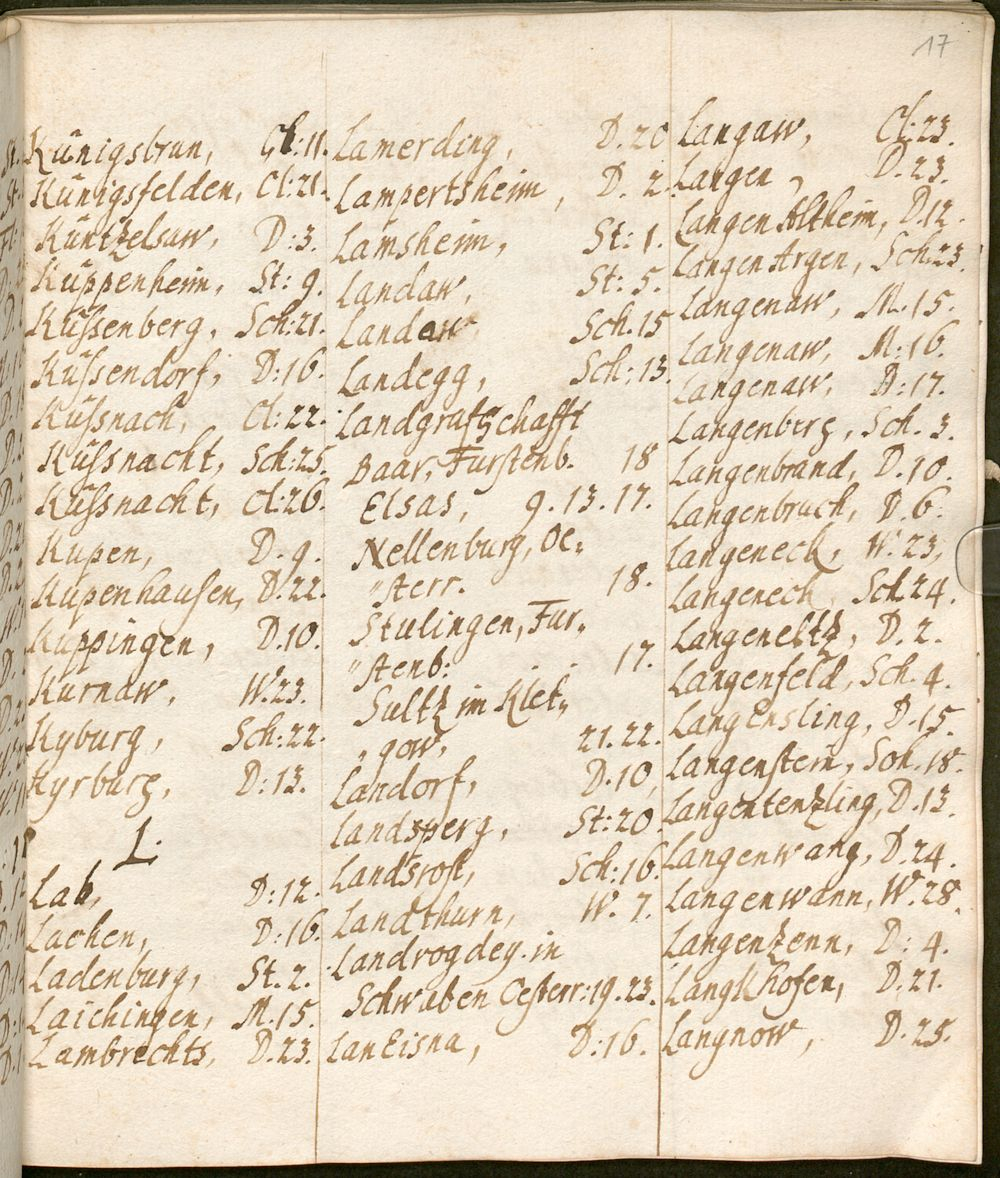 17
Künigsbrun, Cl:11.
Künigsfelden, Cl:21.
Küntzelsaw, D:3.
Küppenheim, St: 9.
Küssenberg, Sch:21.
Küssendorf, D:16.
Küssnach, Cl:22.
Küssnacht, Sch:25.
Küssnacht, Cl:26.
Kupen, D.9.
Kupenhausen, D.22.
Kuppingen, D.10.
Kurnaw, W.23.
Kyburg, Sch:22.
Kyrburg, D:13.
L.
Lab, D:12.
Lachen, D:16.
Ladenburg, St.2.
Laichingen, M.15.
Lambrechts, D.23.
Lamerding, D.20
Lampertsheim, D. 2.
Lamsheim, St: 1.
Landaw, St: 5.
Landaw Sch.15
Landegg, Sch:13.
Landgrafschafft
Baar, Furstenb. 18
Elsas, 9.13.17.
Nellenburg, Oe„
„sterr. 18.
Stulingen, Fur„
„stenb. 17.
Sultz im Klet„
„gow, 21.22.
Landorf, D.10,
Landsperg, St:20.
Landsrost, Sch:16.
Landthurn, W. 7.
Landvogdey in
Schwaben Oesterr:19.23.
LanEisna, D:16.
Langaw, Cl:23.
Langen, D.23.
Langen Altheim, D.12.
Langen Argen, Sch:23.
Langenaw, M.15.
Langenaw, M:16.
Langenaw, D:17.
Langenberg, Sch. 3.
Langenbrand, D.10.
Langenbruck, D.6.
Langeneck, W.23,
Langeneck Sch.24.
Langeneltz, D.2.
Langenfeld, Sch.4.
LangEnsling, D.15.
Langenstein, Sch.18.
Langentenzling, D.13.
Langenwang, D.24.
Langenwann, W.28.
Langenzenn, D: 4.
Langkhofen, D.21.
Langnow, D.25.